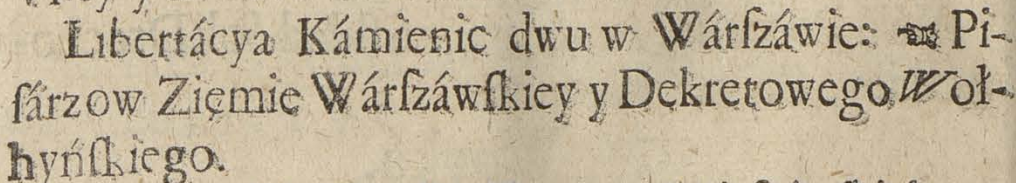 Libertácya Kámienic dwu w Wárſzáwie: ☜ Pi-
ſárzow Zięmie Wárſzáwſkiey y Dekretowego Woł-
hyńſkiego.